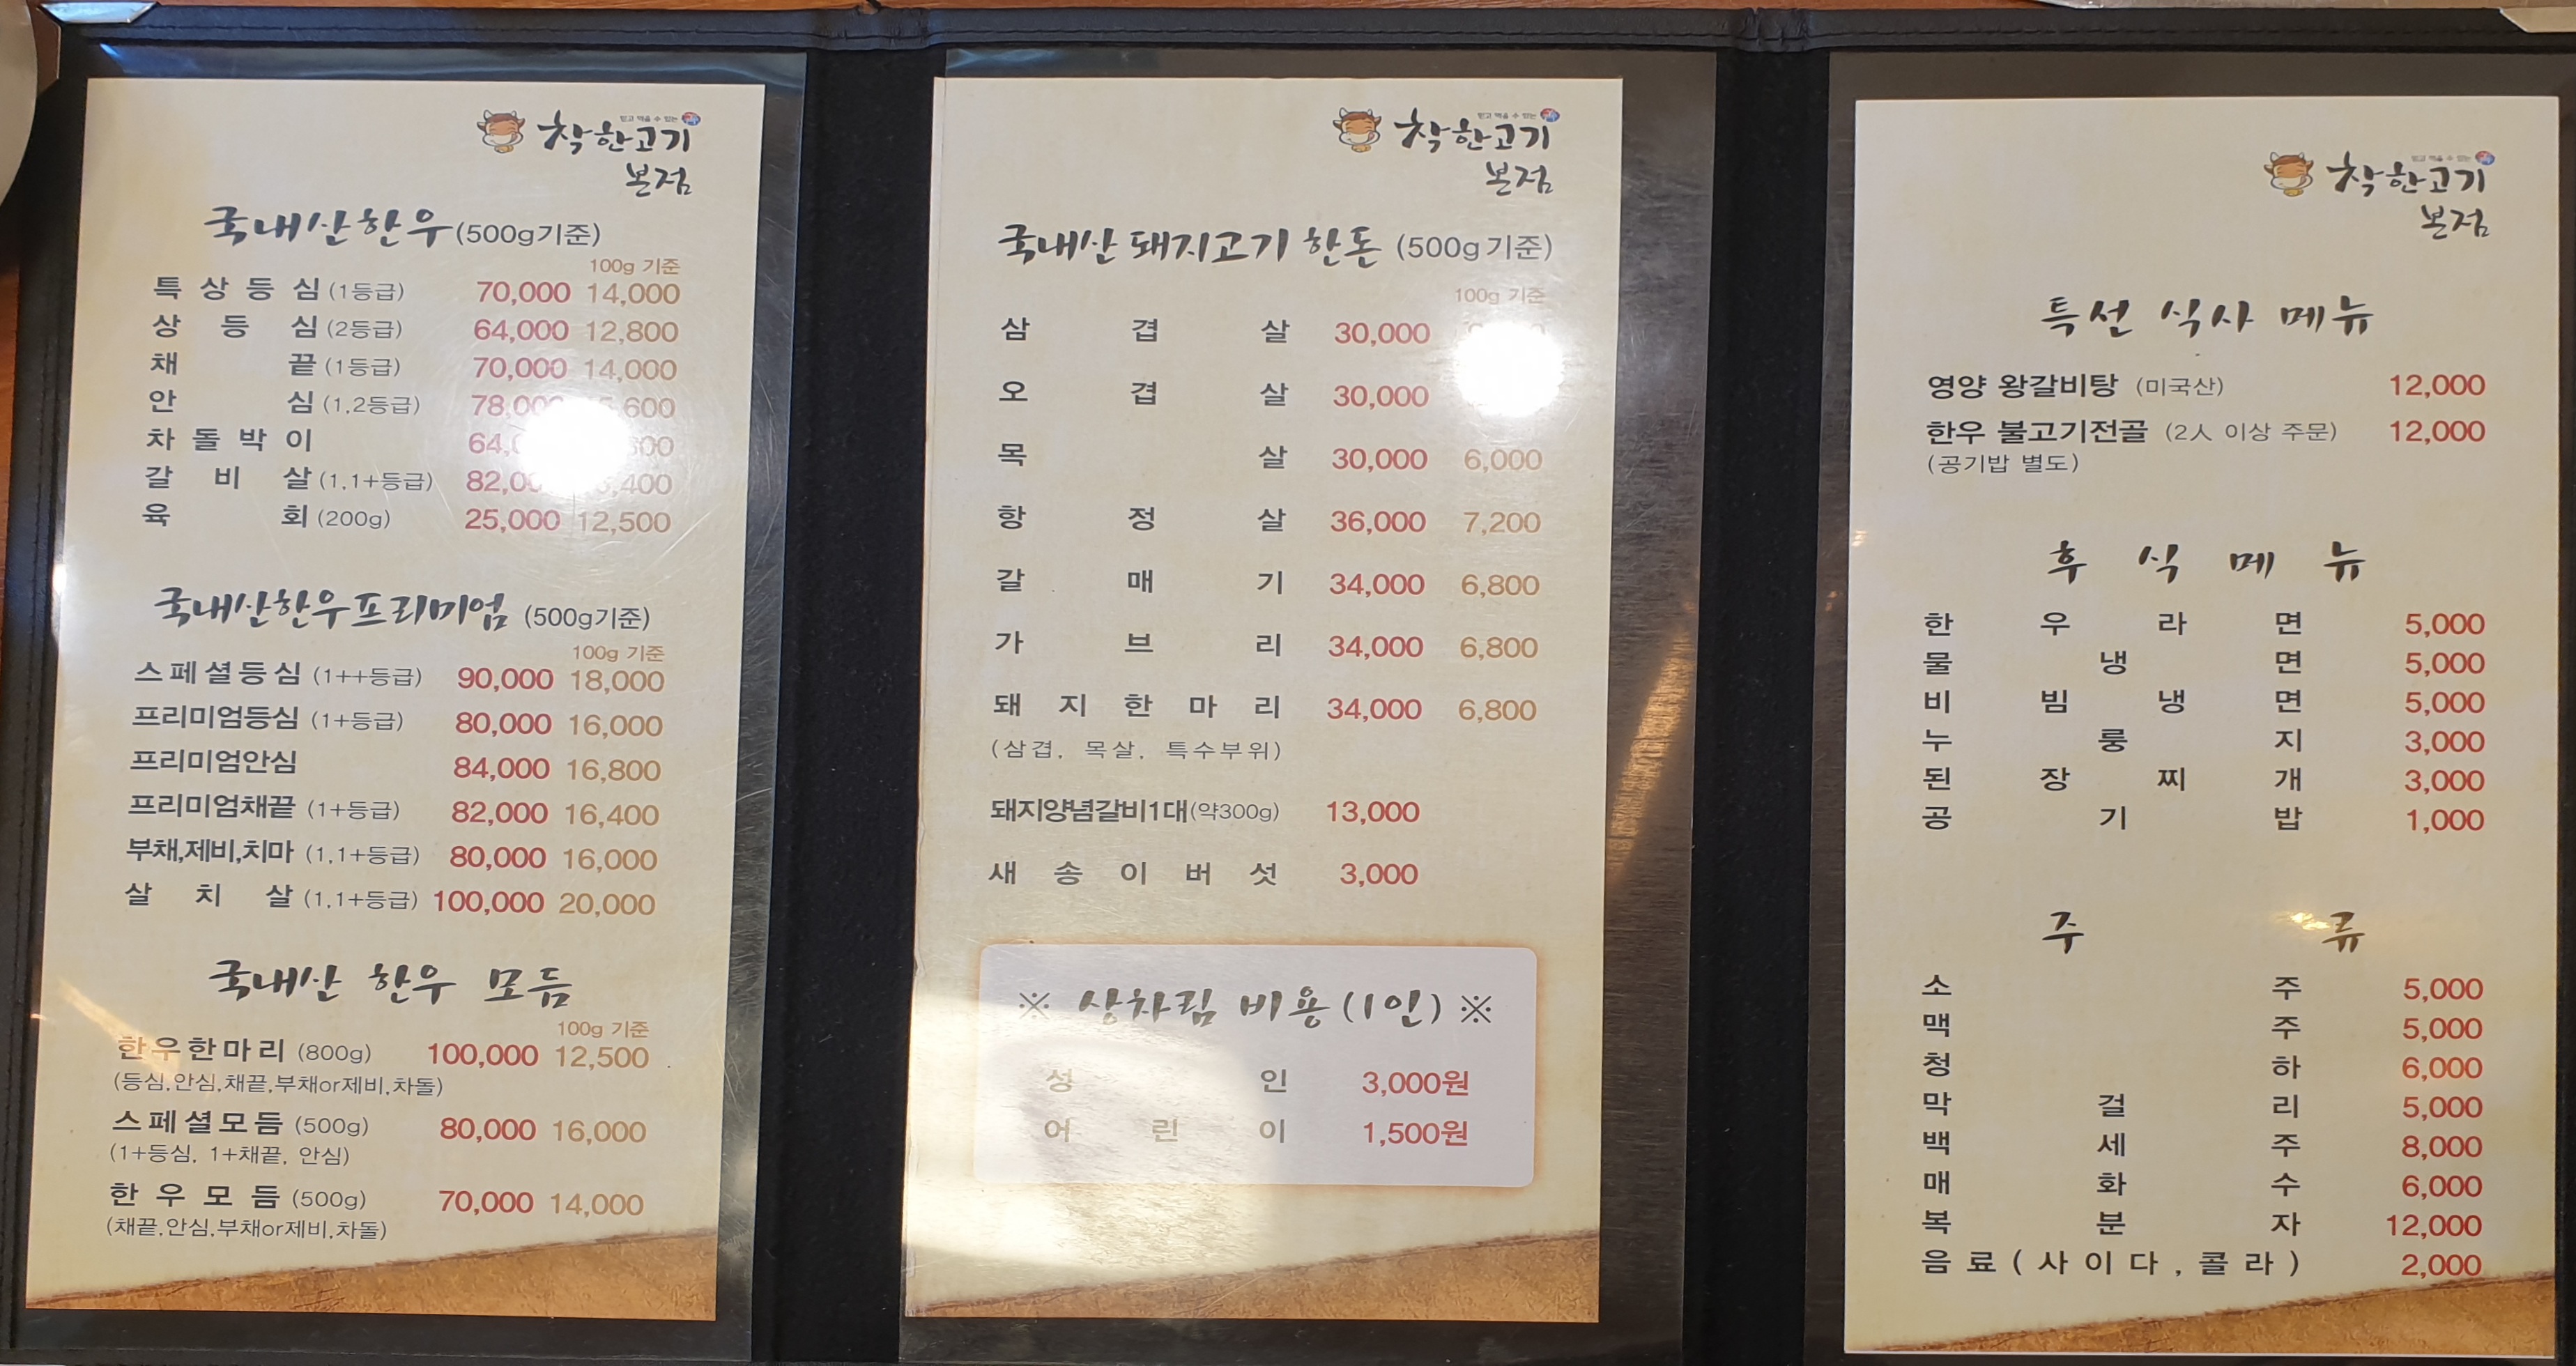 믿고 먹을 수 있는
착한고기
본점
국내산한우(500g기준)
100g 기준
특상등심(1등급) 70,000 14,000
상등심(2등급) 64,000 12,800
채끝(1등급) 70,000 14,000
안심(1,2등급)
차돌박이
갈비살(1,1+등급)
육회(200g) 25,000 12,500
국내산한우프리미엄 (500g기준)
100g 기준
스페셜등심 (1++등급) 90,000 18,000
프리미엄등심 (1+등급) 80,000 16,000
프리미엄안심 84,000 16,800
프리미엄채끝 (1+등급) 82,000 16,400
부채,제비,치마 (1,1+등급) 80,000 16,000
살치살 (1,1+등급) 100,000 20,000
국내산 한우 모듬
100g 기준
한우한마리 (800g) 100,000 12,500
(등심,안심,채끝,부채or제비,차돌)
스페셜모듬 (500g) 80,000 16,000
(1+등심, 1+채끝, 안심)
한우모듬 (500g) 70,000 14,000
(채끝,안심,부채or제비,차돌)
믿고 먹을 수 있는
착한고기
본점
국내산 돼지고기 한돈 (500g기준)
100g 기준
삼겹살 30,000
오겹살 30,000
목살 30,000 6,000
항정살 36,000 7,200
갈매기 34,000 6,800
가브리 34,000 6,800
돼지한마리 34,000 6,800
(삼겹, 목살, 특수부위)
돼지양념갈비1대(약300g) 13,000
새송이버섯 3,000
※ 상차림 비용(1인) ※
성인 3,000원
어린이 1,500원
믿고 먹을 수 있는
착한고기
본점
특선 식사 메뉴
영양 왕갈비탕 (미국산) 12,000
한우 불고기전골 (2人 이상 주문) 12,000
(공기밥 별도)
후식메뉴
한우라면 5,000
물냉면 5,000
비빔냉면 5,000
누룽지 3,000
된장찌개 3,000
공기밥 1,000
주류
소주 5,000
맥주 5,000
청하 6,000
막걸리 5,000
백세주 8,000
매화수 6,000
복분자 12,000
음료(사이다,콜라) 2,000